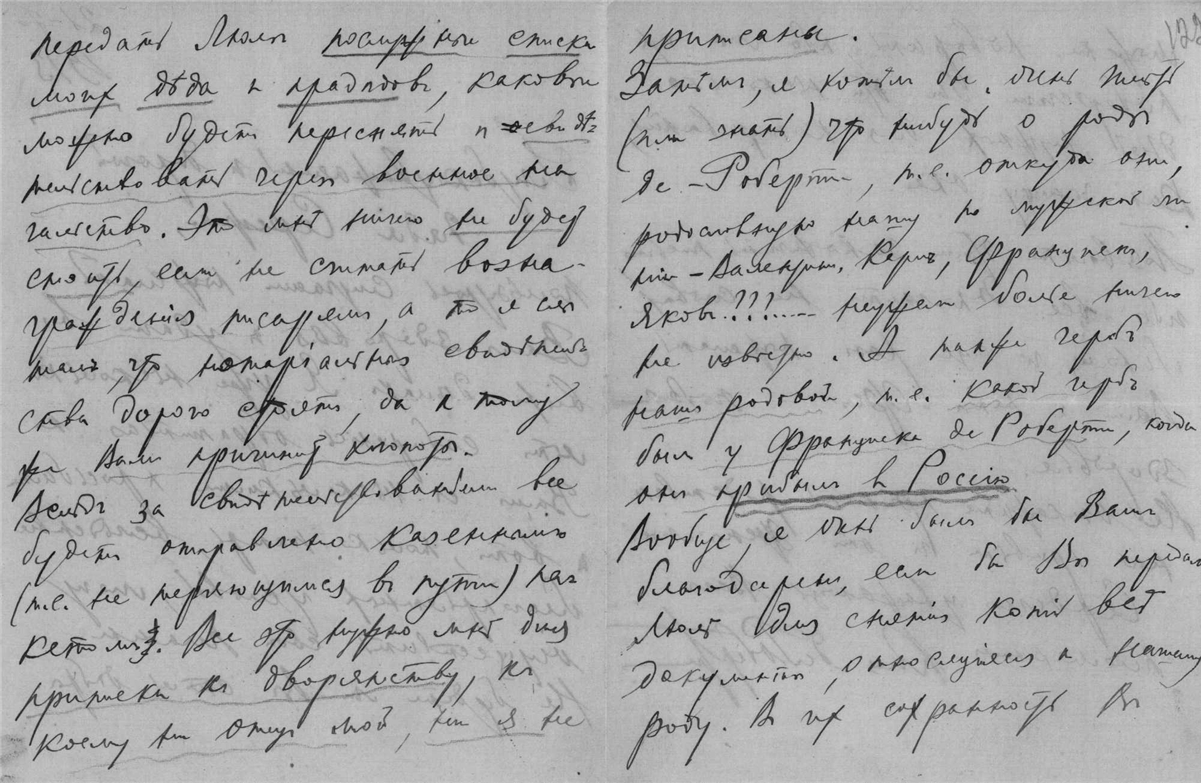 передать Люлѣ послужные списки
моихъ дѣда и прадѣдовъ, каковые
можно будетъ переснять и свидѣ=
тельствовать черезъ военное на
чальство. Это мнѣ ничего не будетъ
стоить, если не считать возна-
гражденія писарямъ, а то я слы
шалъ, что нотаріальныя свидѣтель
ства дорого стоятъ, да к тому
же Вамъ причинятъ хлопоты.
Вслѣдъ за свидѣтельствованіемъ все
будетъ отправлено казеннымъ
(т.е. не теряющимся въ пути) па
кетомъ. Все это нужно мнѣ для
приписки къ дворянству, къ
коему ни отецъ мой, ни я не
приписаны.
122
Затѣмъ, я хотѣлъ бы, очень имѣть
(или знать) что нибудь о родѣ
де-Роберти, т.е. откуда они,
родословную нашу по мужской ли
ніи - Валентинъ, Карлъ, Францискъ,
Яковъ!??.... неужели болѣе ничего
не извѣстно. А также гербъ
нашъ родовой, т.е. какой гербъ
былъ у Франциска де Роберти, когда
онъ прибылъ въ Россію
Вообще, я очень былъ бы Вамъ
благодаренъ, если бы Вы передали
Люлѣ для снятія копій всѣ
документы, относящіеся к нашему
роду. В их сохранность Вы